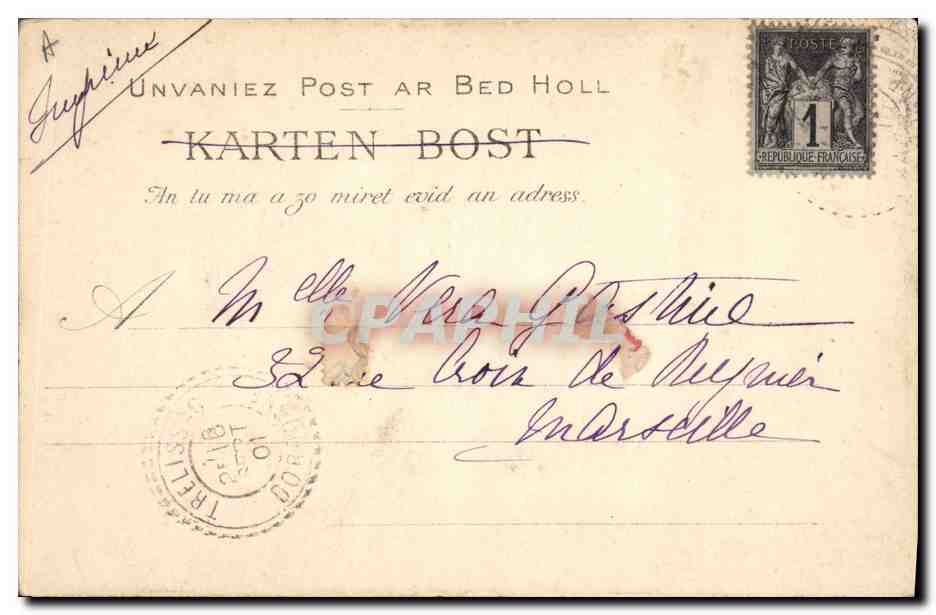 A
Imprimé
UNVANIEZ POST AR BED HOLL
KARTEN BOST
An tu ma a zo miret evid an adress.
POSTE
1
REPUBLIQUE FRANÇAISE
A Melle Vera Gastine
32 rue Croix de Reynier
Marseille
CPAPHIL
TRELISS DORDOG
2E 18
SEPT
01